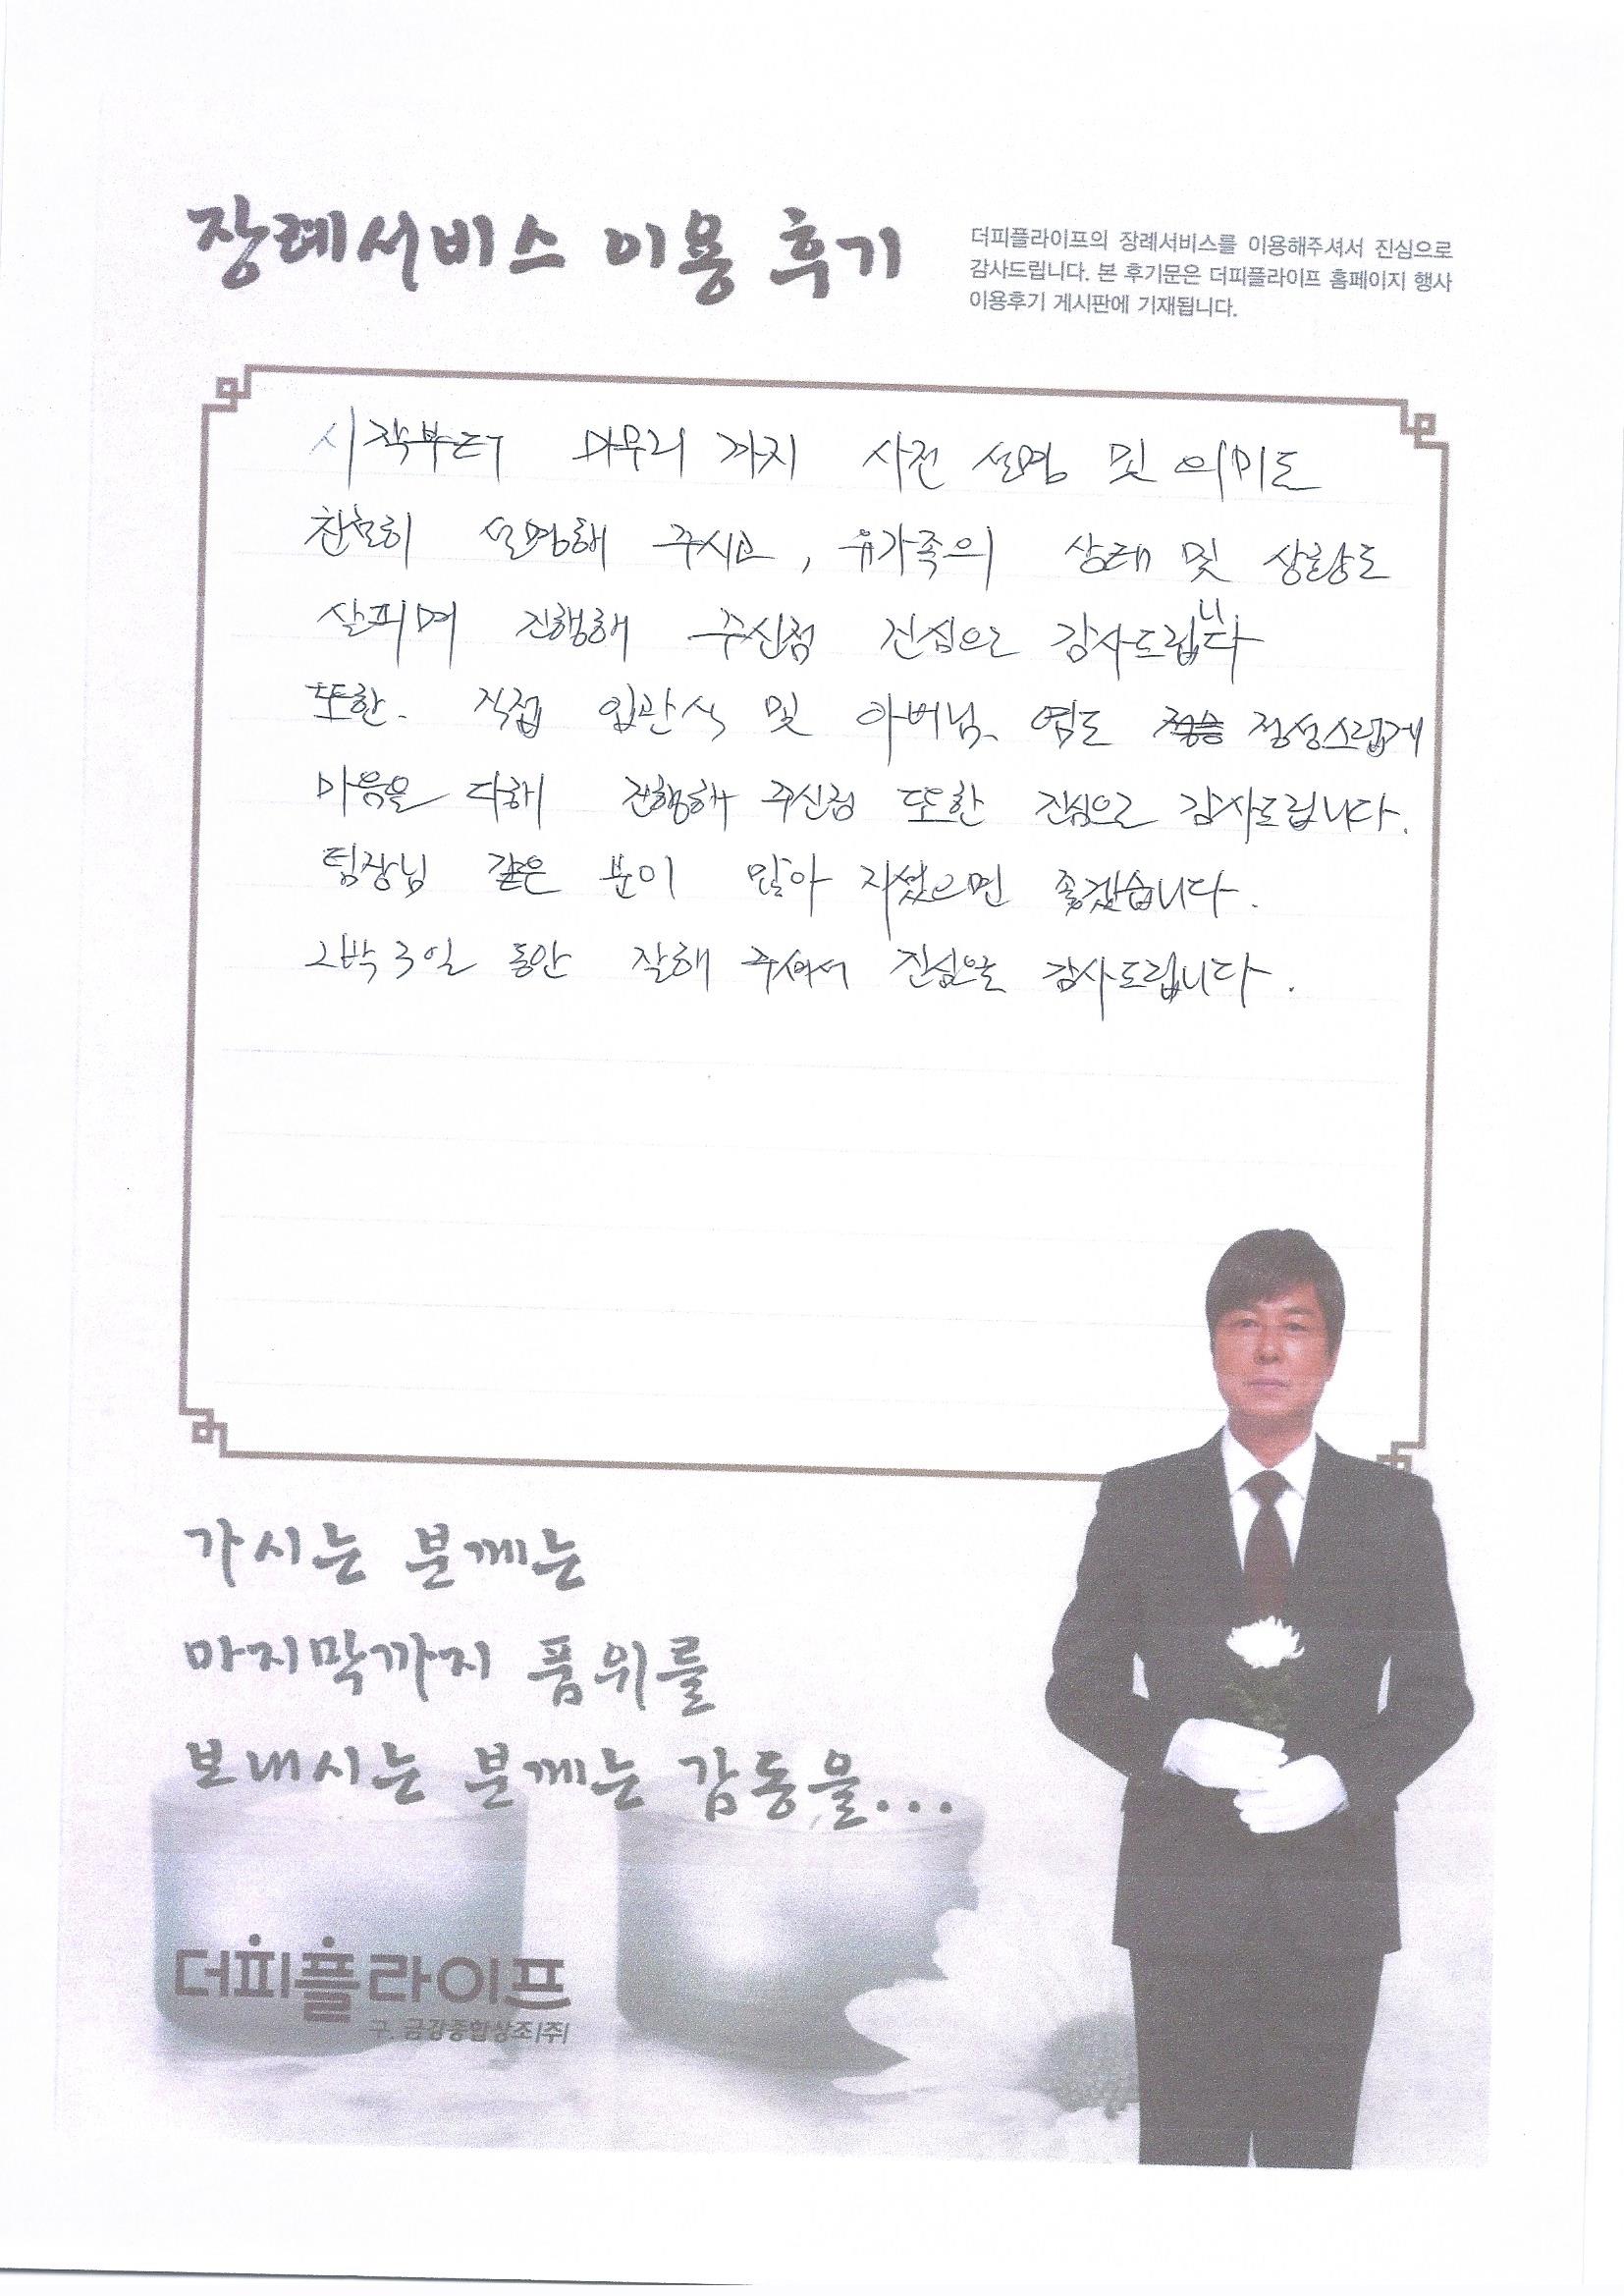 장례서비스 이용 후기
더피플라이프의 장례서비스를 이용해주셔서 진심으로
감사드립니다. 본 후기문은 더피플라이프 홈페이지 행사
이용후기 게시판에 기재됩니다.
시작부터 마무리 까지 사전 설명 및 의미도
친절히 설명해 주시고, 유가족의 상태 및 상황도
살피며 진행해 주신점 진심으로 감사드립니다
또한. 직접 입관식 및 아버님 염도 정성스럽게
마음을 다해 진행해 주신점 또한 진심으로 감사드립니다.
팀장님 같은 분이 많아 지셨으면 좋겠습니다.
2박 3일 동안 잘해 주셔서 진심으로 감사드립니다.
가시는 분께는
마지막까지 품위를
보내시는 분께는 감동을...
더피플라이프
구. 금강종합상조(주)